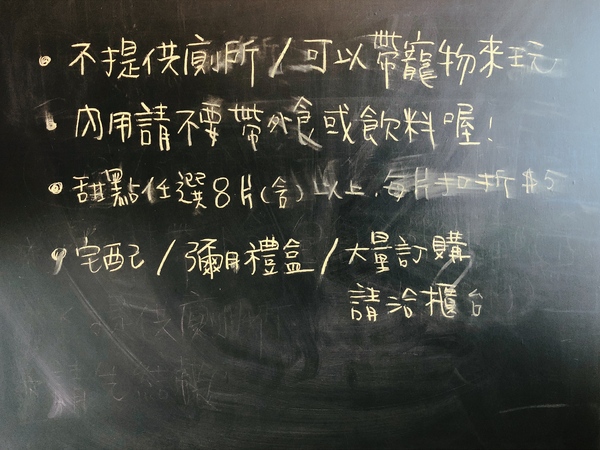 • 不提供廁所/可以帶寵物來玩
• 內用請不要帶外食或飲料喔!
• 甜點任選8片(含)以上,每片扣折$5
• 宅配/彌月禮盒/大量訂購
請洽櫃台
供廁所